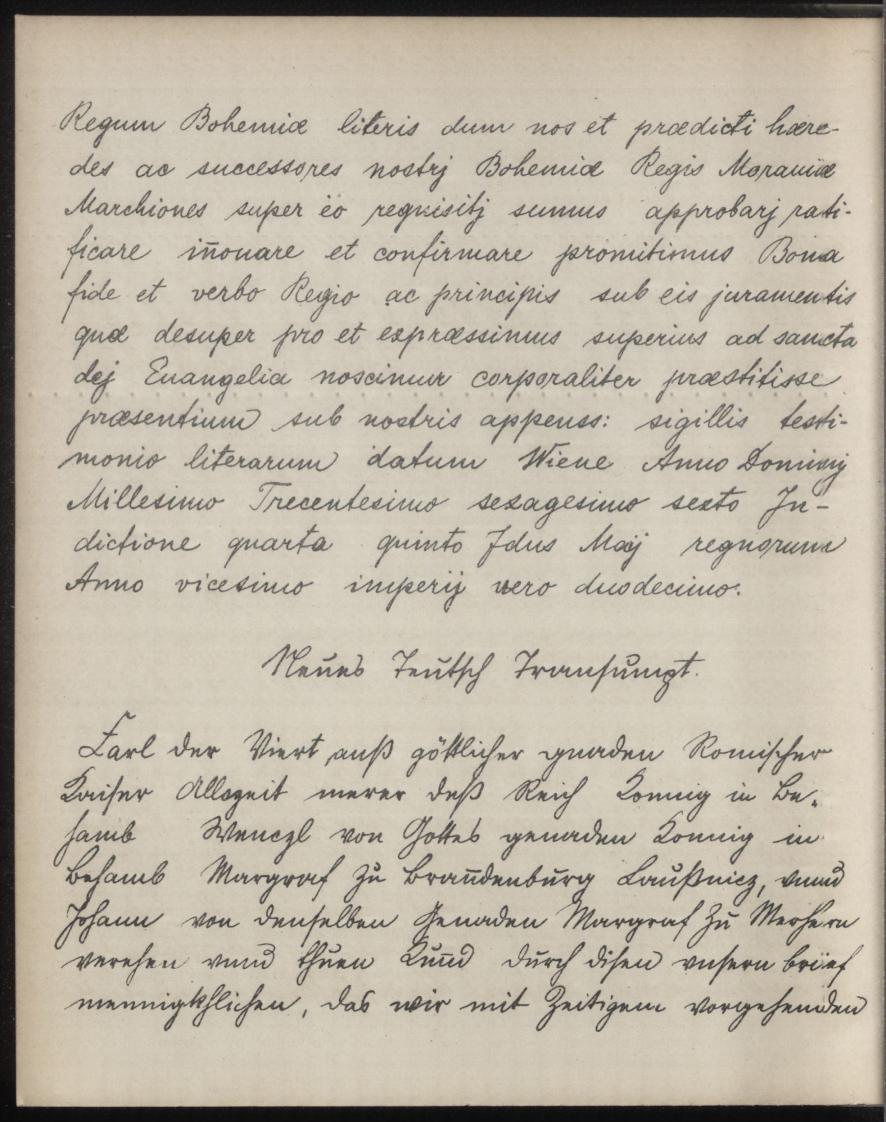 Regum Bohemiæ literis dum nos et prædicti hære-
des ac successores nostrj Bohemiæ Regis Morauiæ
Marchiones super ëo requisitj sumus approbarj rati-
ficare iñouare et confirmare promitimus Bona
fide et verbo Regio ac principis sub eis juramentis
quæ desuper pro et expræssimus superius ad sancta
dej Euangelia noscimur corporaliter præstitisse
præsentium sub nostris appenss: sigillis testi-
monio literarum datum Wiene Anno Dominj
Millesimo Trecentesimo sexagesimo sexto In-
dictione quarta quinto Idus Maij regnorum
Anno vicesimo imperij vero duodecimo.
Neues Teutsch Transumpt.
Carl der Viert auß göttlicher gnaden Romischer
Kaiser Allezeit merer deß Reich Konnig in Be-
hamb Wenczl von Gottes genaden Konnig in
Behamb Margraf zu Brandenburg Laußnicz, vnnd
Johann von denselben Genaden Margraf zu Merhern
verehen vnnd thuen Kund durch disen vnsern brief
mennigkhlichen, das wir mit Zeitigem vorgehenden